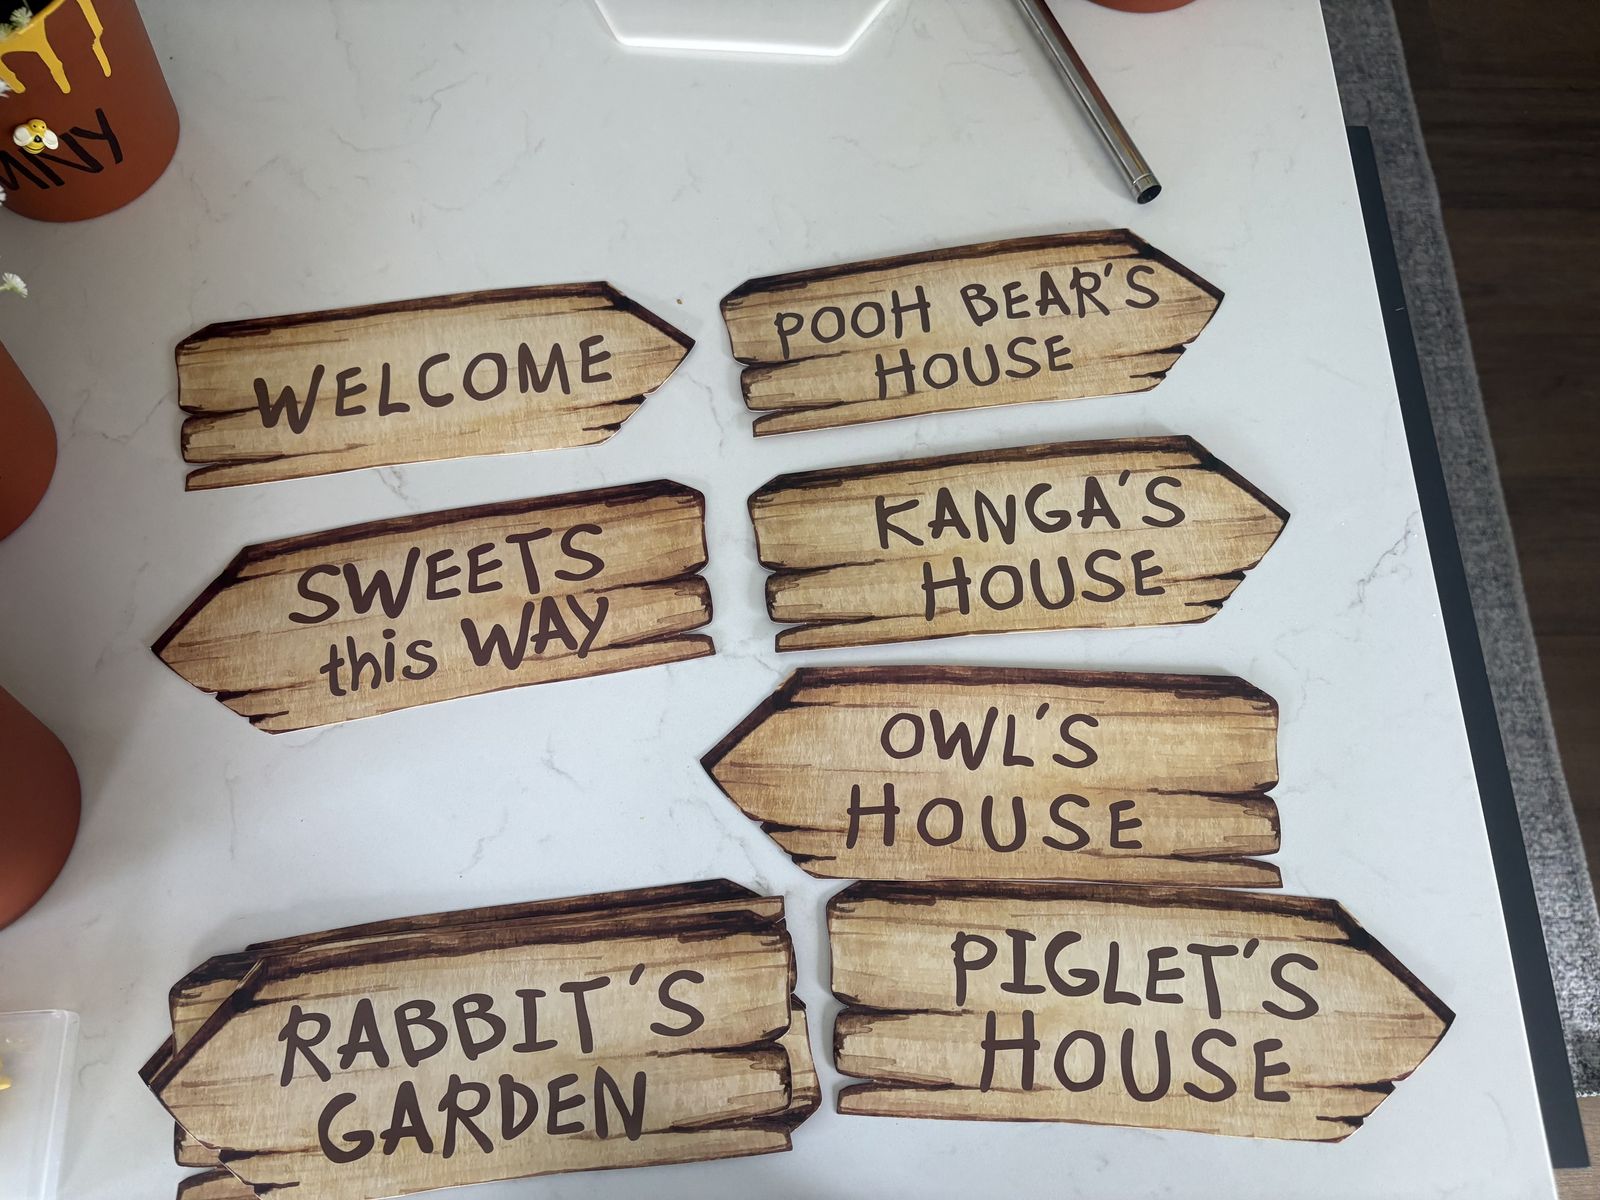 WELCOME
POOH BEAR'S
HOUSE
SWEETS
this WAY
KANGA'S
HOUSE
OWL'S
HOUSE
RABBIT'S
GARDEN
PIGLET'S
HOUSE